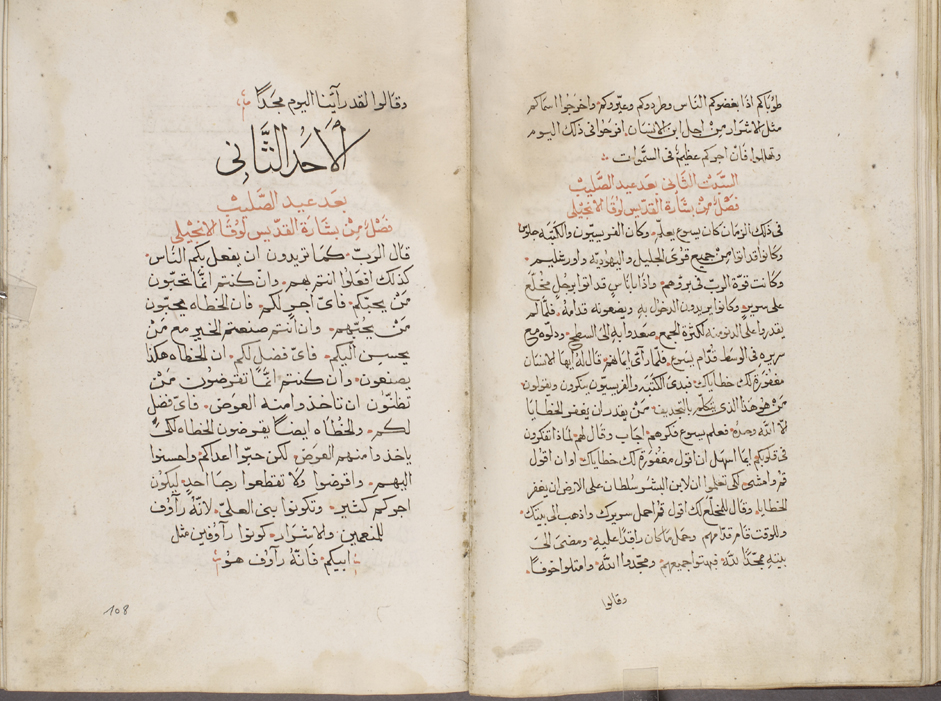 طوباكم اذا بغضوكم الناس وطردوكم وعيّروكم واخرجوا اسماكم
مثل الاشرار من اجل ابن الانسان افرحوا في ذلك اليوم
وتهللوا فان اجركم عظيم في السموات
السبت الثاني بعد عيد الصليب
فصل من بشارة القديس لوقا الانجيلي
في ذلك الزمان كان يسوع يعلم وكان الفريسيون والكتبة جلوسا
وكانوا قد اتوا من جميع قرى الجليل واليهودية واورشليم
وكانت قوة الرب في بروهم واذا اناس قد اتوا برجل مخلع
على سرير وكانوا يريدون الدخول به ويضعونه قدامه فلما لم
يقدروا على الدنو منه لكثرة الجمع صعدوا به الى السطح ودلوه مع
سريره في الوسط قدام يسوع فلما رأى ايمانهم قال له ايها الانسان
مغفورة لك خطاياك فبدئ الكتبة والفريسيون يفكرون ويقولون
من هو هذا الذي يتكلم بالتجديف من يقدر ان يغفر الخطايا
الا الله وحده فعلم يسوع فكرهم اجاب وقال لهم لماذا تفكرون
في قلوبكم ايما اسهل ان اقول مغفورة لك خطاياك او ان اقول
قم وامشي لكي تعلموا ان لابن البشر سلطان على الارض ان يغفر
الخطايا وقال للمخلع لك اقول قم احمل سريرك واذهب الى بيتك
وللوقت قام قدامهم وحمل ما كان راقدا عليه ومضى الى
بيته ممجدا لله فبهتوا جميعهم ومجدوا الله وامتلوا خوفا
وقالوا
وقالوا لقد رآينا اليوم مجدا
الاحد الثاني
بعد عيد الصليب
فصل من بشارة القديس لوقا الانجيلي
قال الرب كما تريدون ان يفعل بكم الناس
كذلك افعلوا انتم بهم وان كنتم انما تحبون
من يحبكم فاي اجر لكم فان الخطاه يحبون
من يحبهم وان انتم صنعتم الخير مع من
يحسن اليكم فاي فضل لكم ان الخطاه هكذا
يصنعون وان كنتم انما تقرضون من
تظنون ان تاخذوا منه العوض فاي فضل
لكم والخطاه ايضا يقرضون الخطاه لكي
ياخذوا منهم العوض لكن حبوا اعداكم واحسنوا
اليهم واقرضوا ولا تقطعوا رجا احد ليكون
اجركم كثير وتكونوا بني العلي لانه رآوف
للمنعمين والاشرار كونوا رآوفين مثل
ابيكم فانه رآوف هو
108